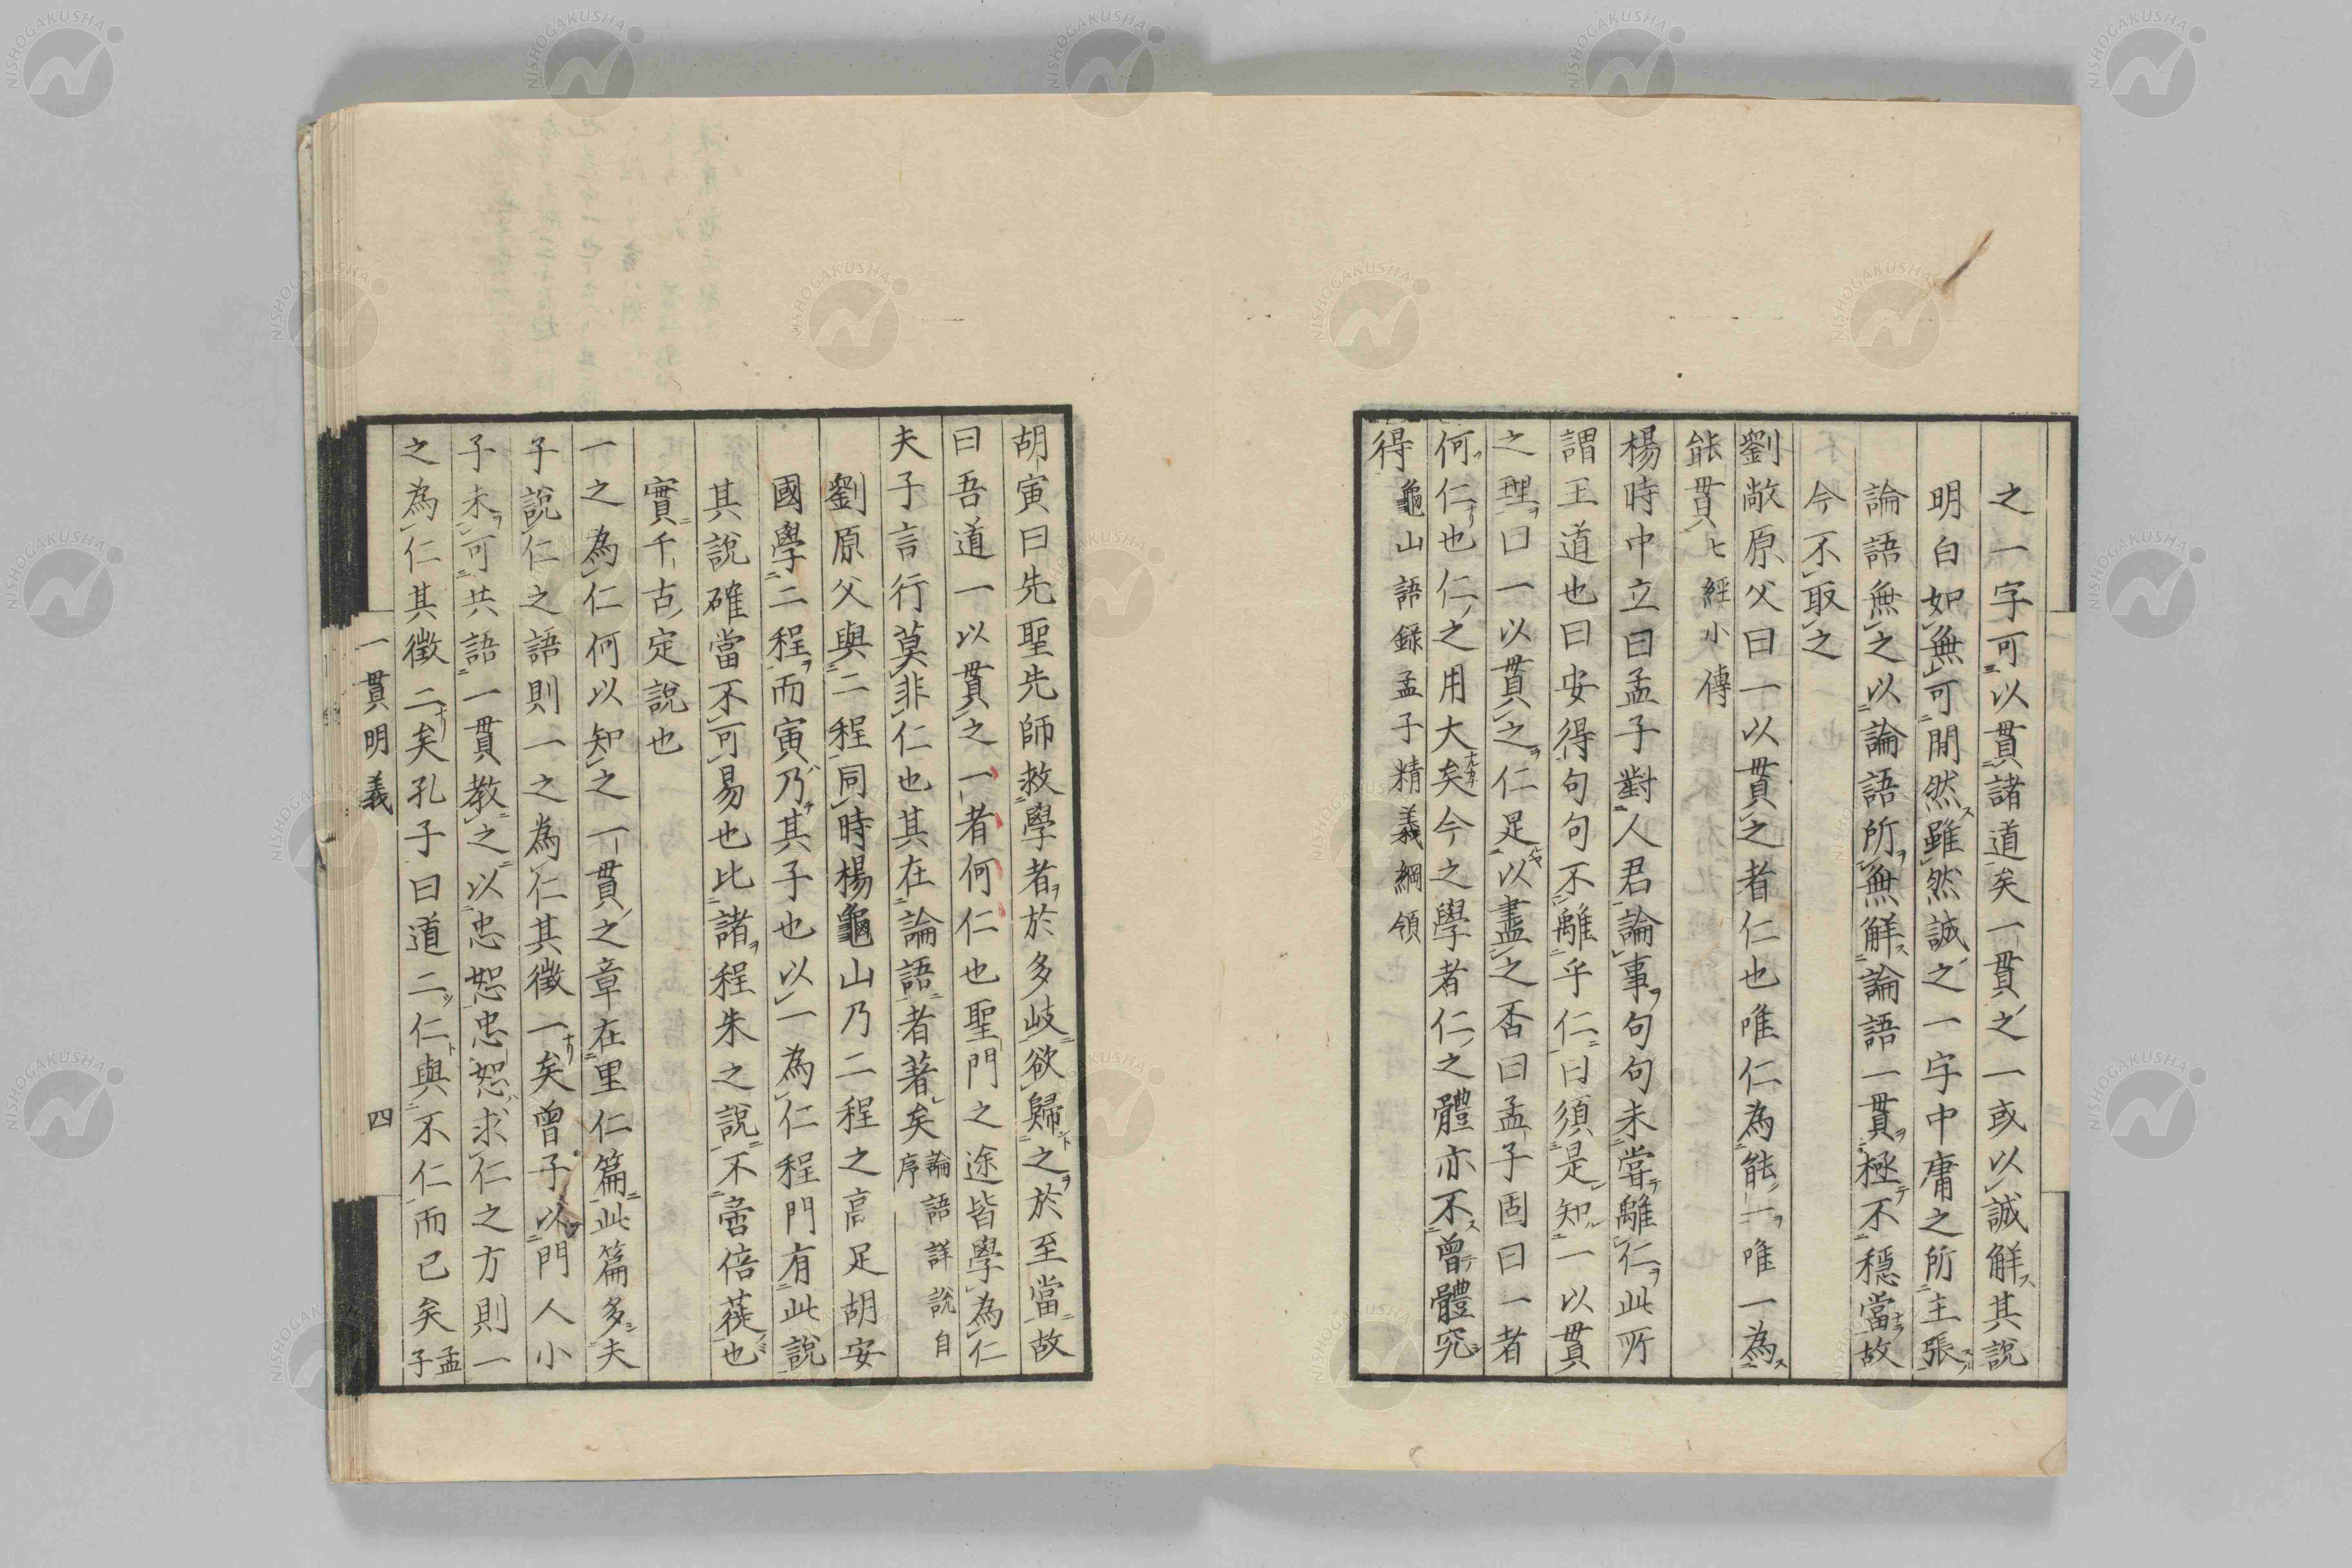 之一字可以貫諸道矣一貫之一或以誠解其說
明白如無可間然雖然誠之一字中庸之所主張
論語無之以論語所無解論語一貫極不穩當故
今不取之
劉敞原父曰一以貫之者仁也唯仁為能一唯一為
能貫七經小傳
楊時中立曰孟子對人君論事句句未嘗離仁此所
謂王道也曰安得句句不離乎仁曰須是知一以貫
之理曰一以貫之仁足以盡之否曰孟子固曰一者
何仁也仁之用大矣今之學者仁之體亦不曾體究
得龜山語録孟子精義綱領
胡寅曰先聖先師救學者於多岐欲歸之於至當故
曰吾道一以貫之一者何仁也聖門之途皆學為仁
夫子言行莫非仁也其在論語者著矣論語詳說自序
劉原父與二程同時楊龜山乃二程之高足胡安
國學二程而寅乃其子也以一為仁程門有此說
其說確當不可易也比諸程朱之說不啻倍蓰也
實千古定說也
一之為仁何以知之一貫之章在里仁篇此篇多夫
子說仁之語則一之為仁其徵一矣曾子以門人小
子未可共語一貫教之以忠恕忠恕求仁之方則一
之為仁其徵二矣孔子曰道二仁與不仁而已矣孟子
一貫明義
四
NISHOGAKUSHA